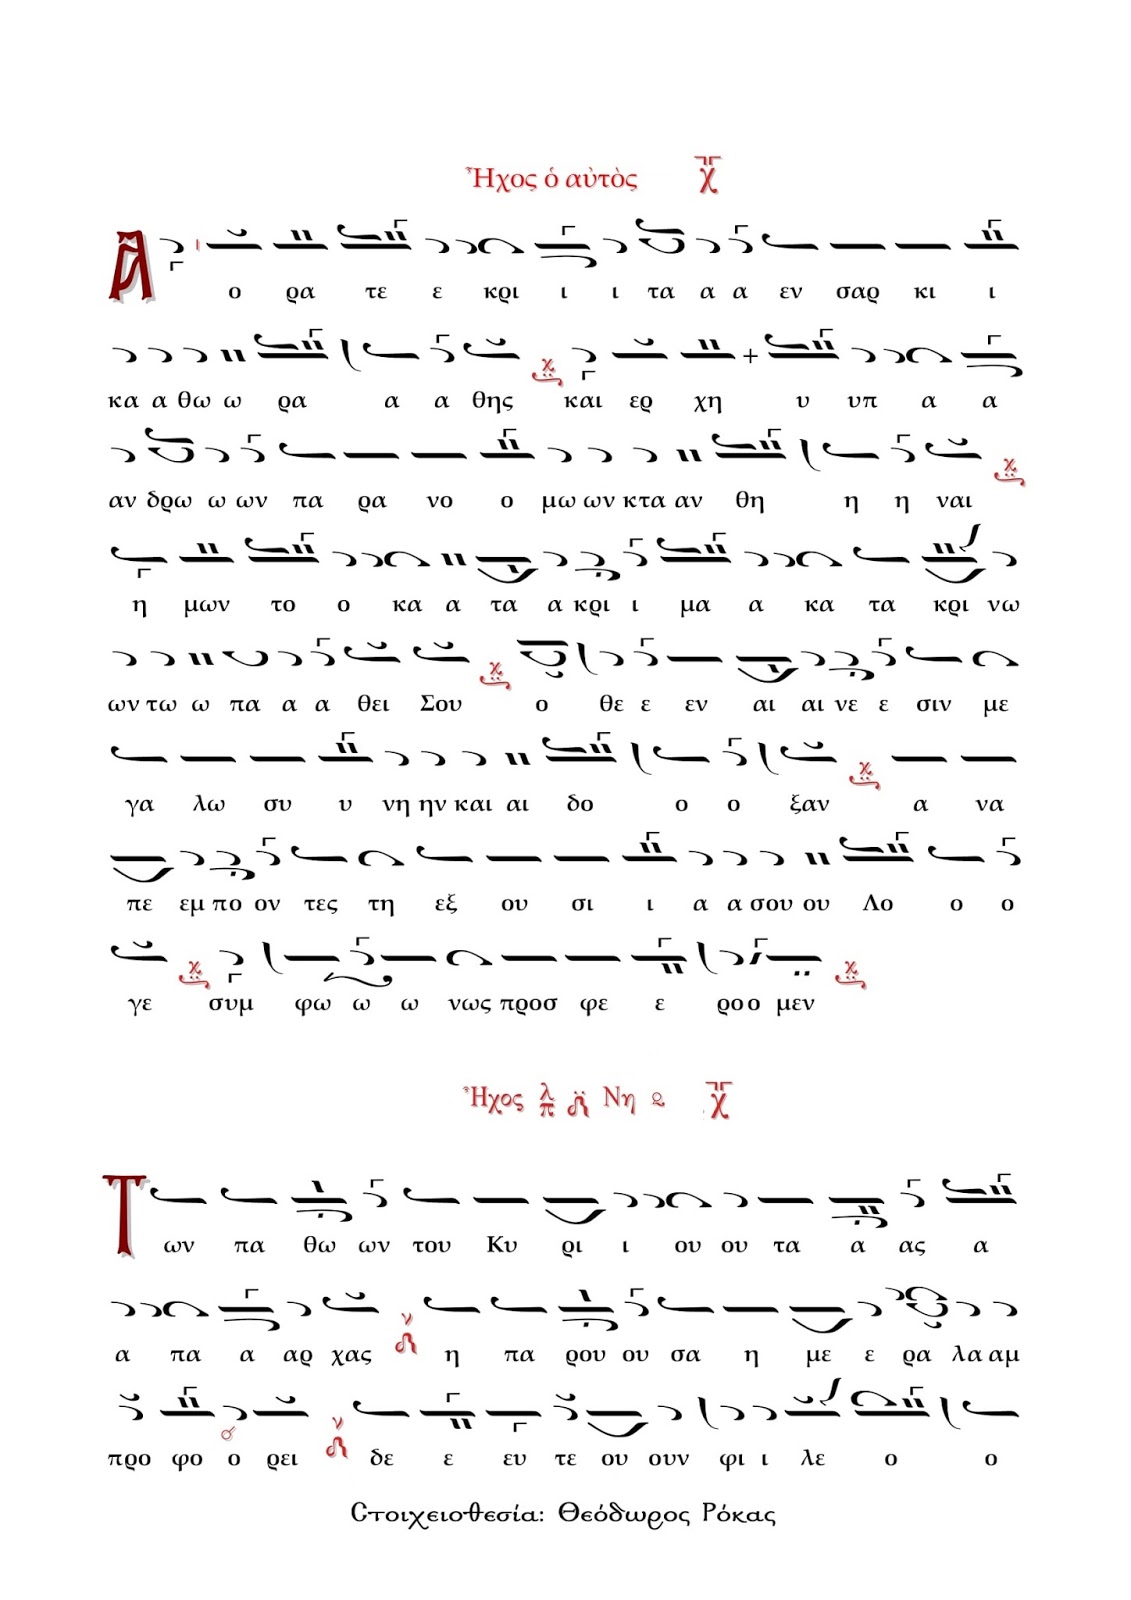 Ἦχος ὁ αὐτὸς
Ἀ ο ρα τε ε κρι ι ι τα α α εν σαρ κι ι
κα α θω ω ρα α α θης και ερ χη υ υπ α α
αν δρω ω ων πα ρα νο ο μω ων κτα αν θη η η ναι
η μων το ο κα α τα α κρι ι μα α κα τα κρι νω
ων τω ω πα α α θει Σου ο θε ε εν αι αι νε ε σιν με
γα λω συ υ νη ην και αι δο ο ο ξαν α να
πε εμ πο ον τες τη εξ ου σι ι α α σου ου Λο ο ο
γε συμ φω ω ω νως προσ φε ε ρο ο μεν
Ἦχος λ π Νη
Τ ων πα θω ων του Κυ ρι ι ου ου τα α ας α
α πα α αρ χας η πα ρου ου σα η με ε ρα λα αμ
προ φο ο ρει δε ε ευ τε ου ουν φι ι λε ο ο
Στοιχειοθεσία: Θεόδωρος Ρόκας